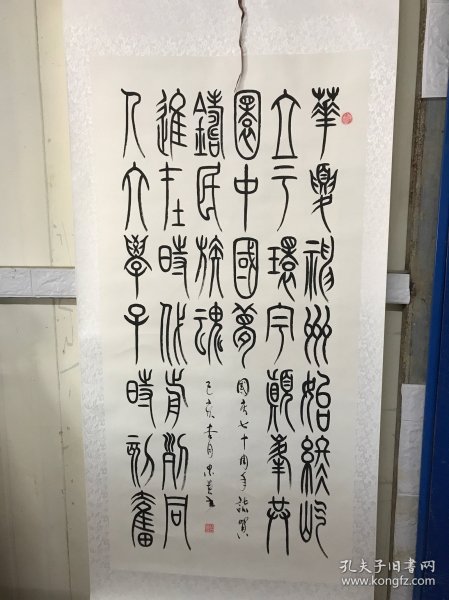 華夏神州始終屹
立于環宇顛峯共
圓中國夢
國慶七十周年誌賀
人文學子時刻奮
進在時代前列同
鑄民族魂
己亥杏月
孔夫子旧书网
www.kongfz.com